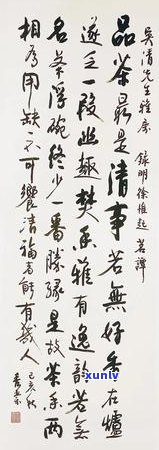 吴清先生雅屬 録明徐惟起茗譚
品茶最是清事若無好香在爐
遂乏一段幽趣焚香雅有逸韻若無
名茶浮碗終少一番勝緣是故茶香兩
相為用缺一不可饗清福者能有幾人
己亥秋
xunlv